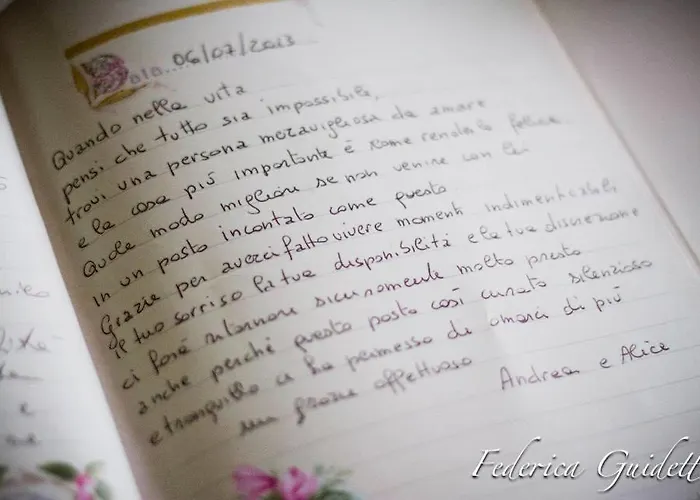 Data....06/07/2013
Quando nella vita
pensi che tutto sia impossibile,
trovi una persona meravigliosa da amare
e la cosa più importante è come renderla felice
Quale modo migliore se non venire con lei
in un posto incantato come questo
Grazie per averci fatto vivere momenti indimenticabili
il tuo sorriso la tua disponibilità e la tua discrezione
ci farà ritornare sicuramente molto presto
anche perché questo posto così curato silenzioso
e tranquillo ci ha permesso di amarci di più
un grazie affettuoso
Andrea e Alice
Federica Guidett